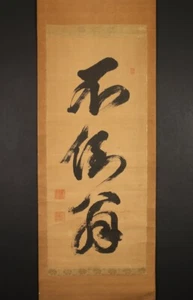 不倒翁